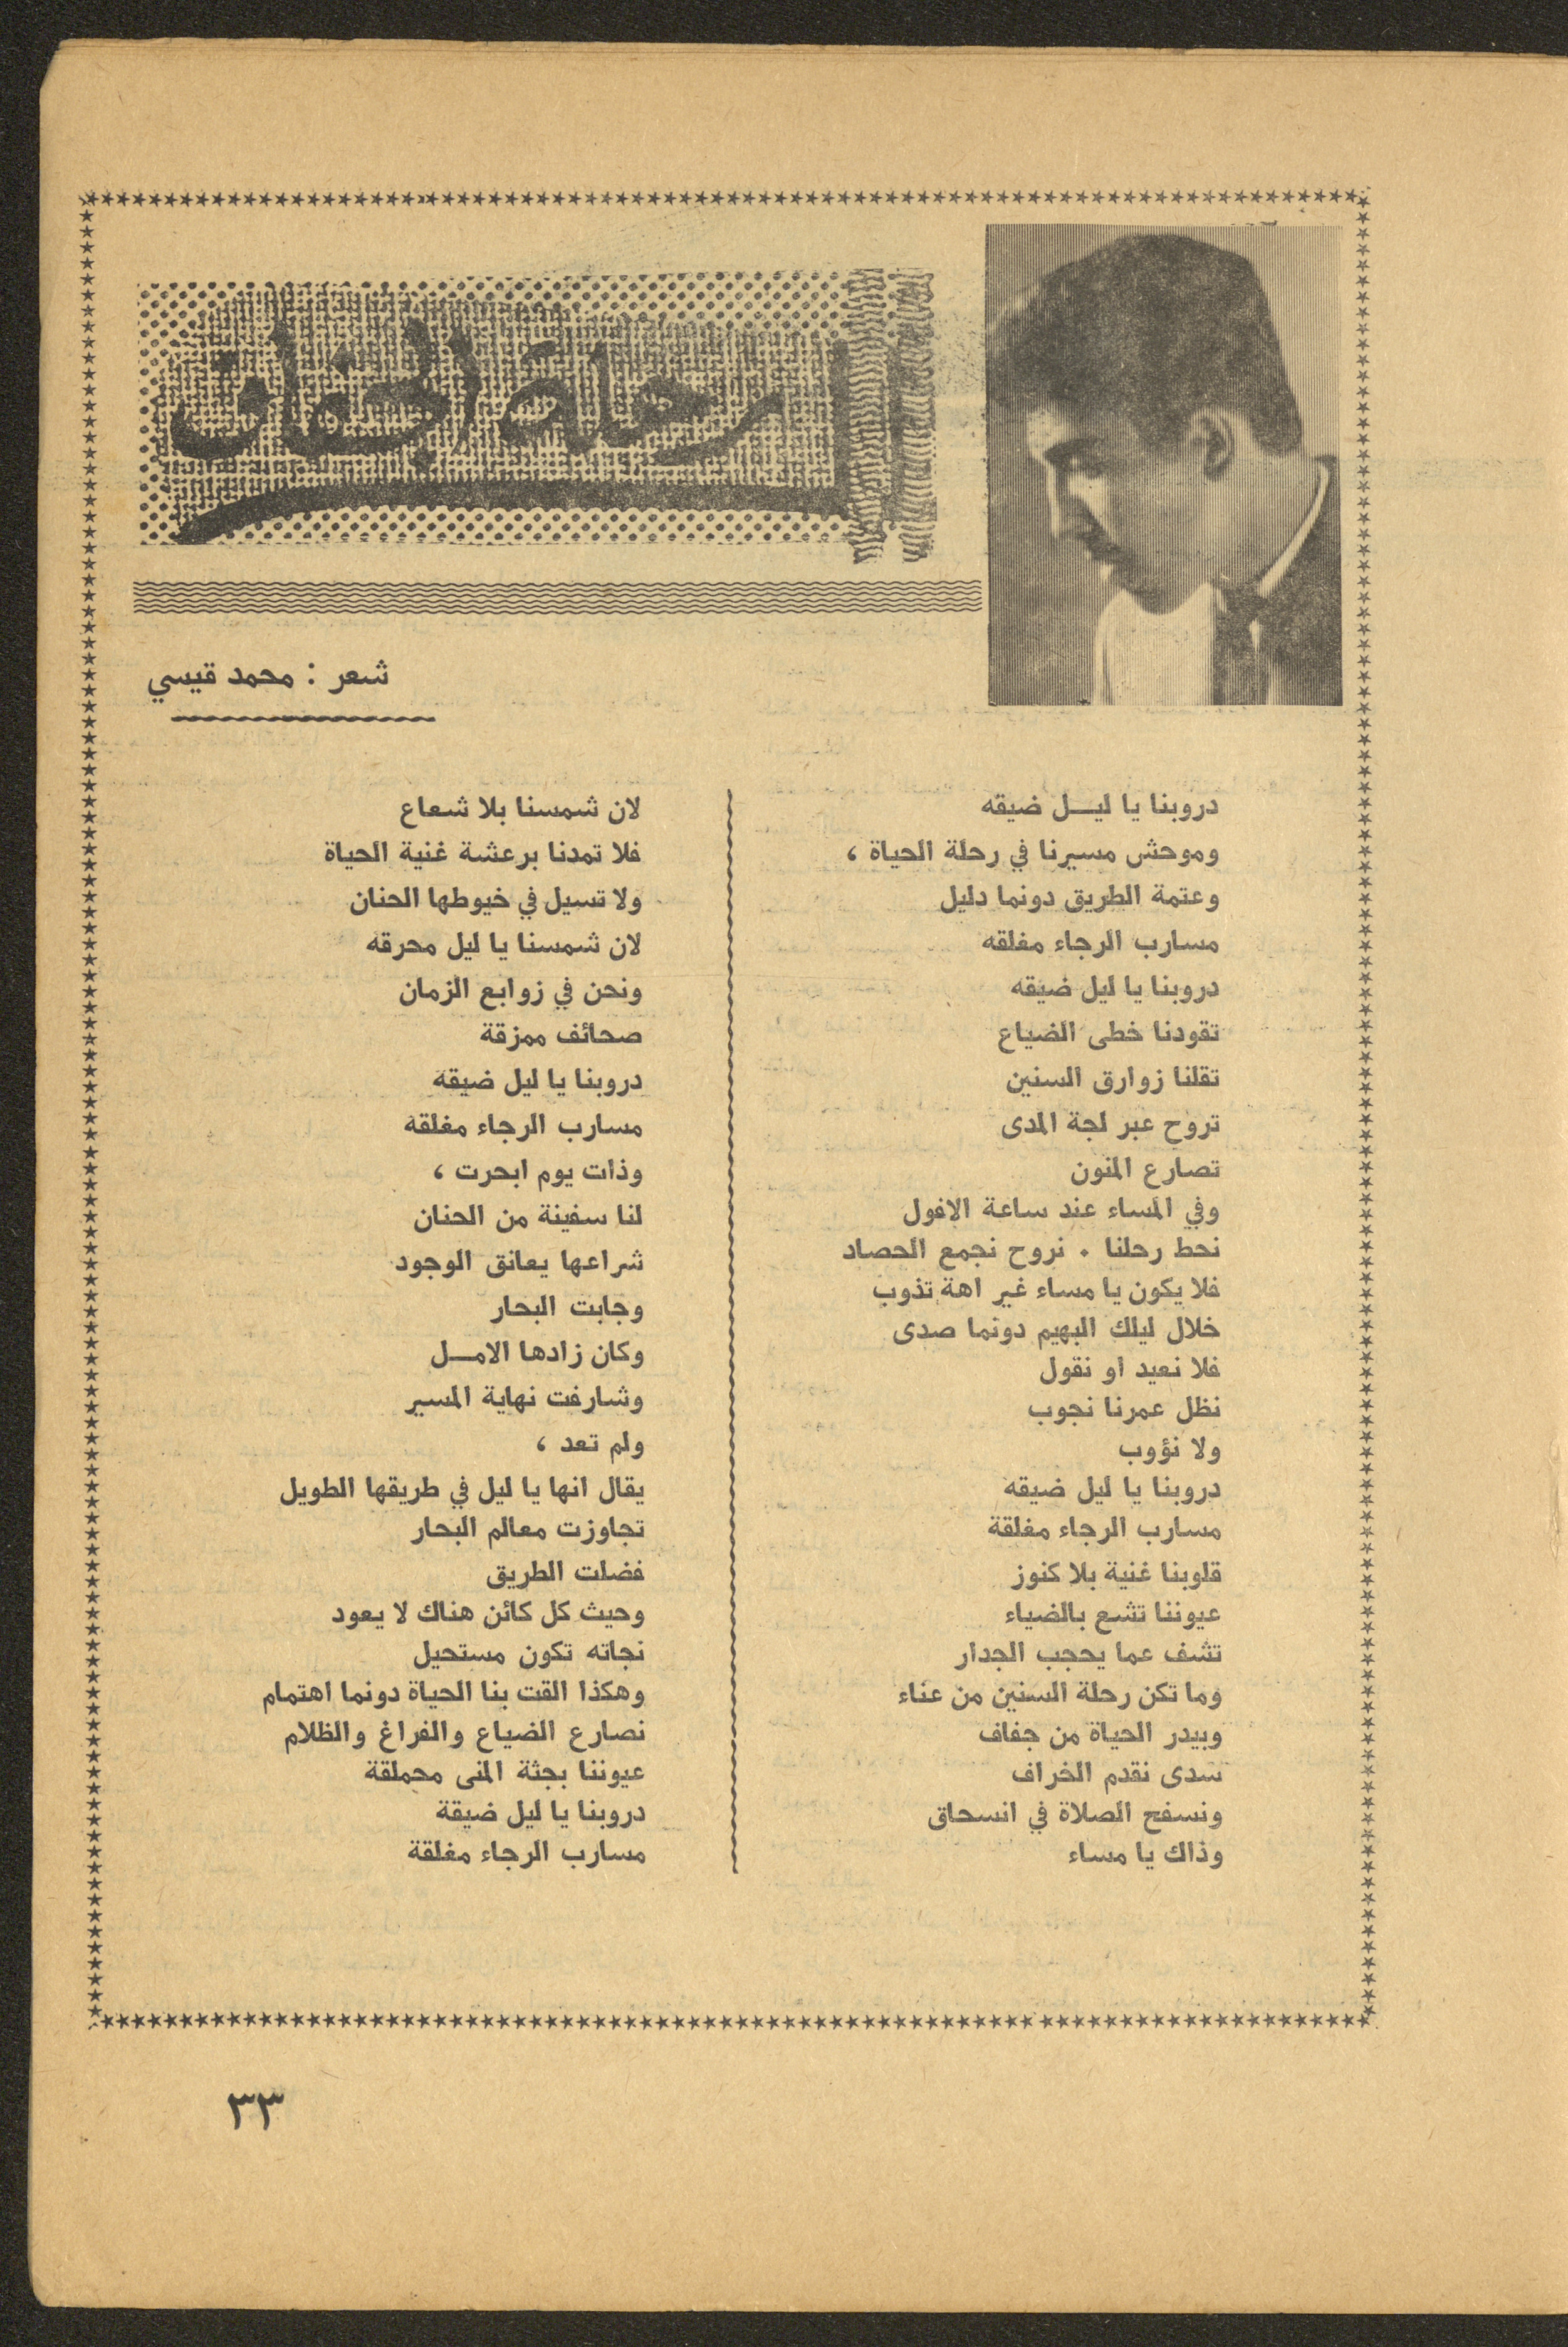 رحلة الجفاف
شعر : محمد قيسي
دروبنا يا ليـــل ضيقه
وموحش مسيرنا في رحلة الحياة ،
وعتمة الطريق دونما دليل
مسارب الرجاء مغلقه
دروبنا يا ليل ضيقه
تقودنا خطى الضياع
تقلنا زوارق السنين
تروح عبر لجة المدى
تصارع المنون
وفي المساء عند ساعة الافول
نحط رحلنا . نروح نجمع الحصاد
فلا يكون يا مساء غير اهة تذوب
خلال ليلك البهيم دونما صدى
فلا نعيد او نقول
نظل عمرنا نجوب
ولا نؤوب
دروبنا يا ليل ضيقه
مسارب الرجاء مغلقة
قلوبنا غنية بلا كنوز
عيوننا تشع بالضياء
تشف عما يحجب الجدار
وما تكن رحلة السنين من عناء
وبيدر الحياة من جفاف
سدى نقدم الخراف
ونسفح الصلاة في انسحاق
وذاك يا مساء
لان شمسنا بلا شعاع
فلا تمدنا برعشة غنية الحياة
ولا تسيل في خيوطها الحنان
لان شمسنا يا ليل محرقه
ونحن في زوابع الزمان
صحائف ممزقة
دروبنا يا ليل ضيقه
مسارب الرجاء مغلقه
وذات يوم ابحرت ،
لنا سفينة من الحنان
شراعها يعانق الوجود
وجابت البحار
وكان زادها الامـــل
وشارفت نهاية المسير
ولم تعد ،
يقال انها يا ليل في طريقها الطويل
تجاوزت معالم البحار
فضلت الطريق
وحيث كل كائن هناك لا يعود
نجاته تكون مستحيل
وهكذا القت بنا الحياة دونما اهتمام
نصارع الضياع والفراغ والظلام
عيوننا بجثة المنى محملقة
دروبنا يا ليل ضيقة
مسارب الرجاء مغلقة
٣٣